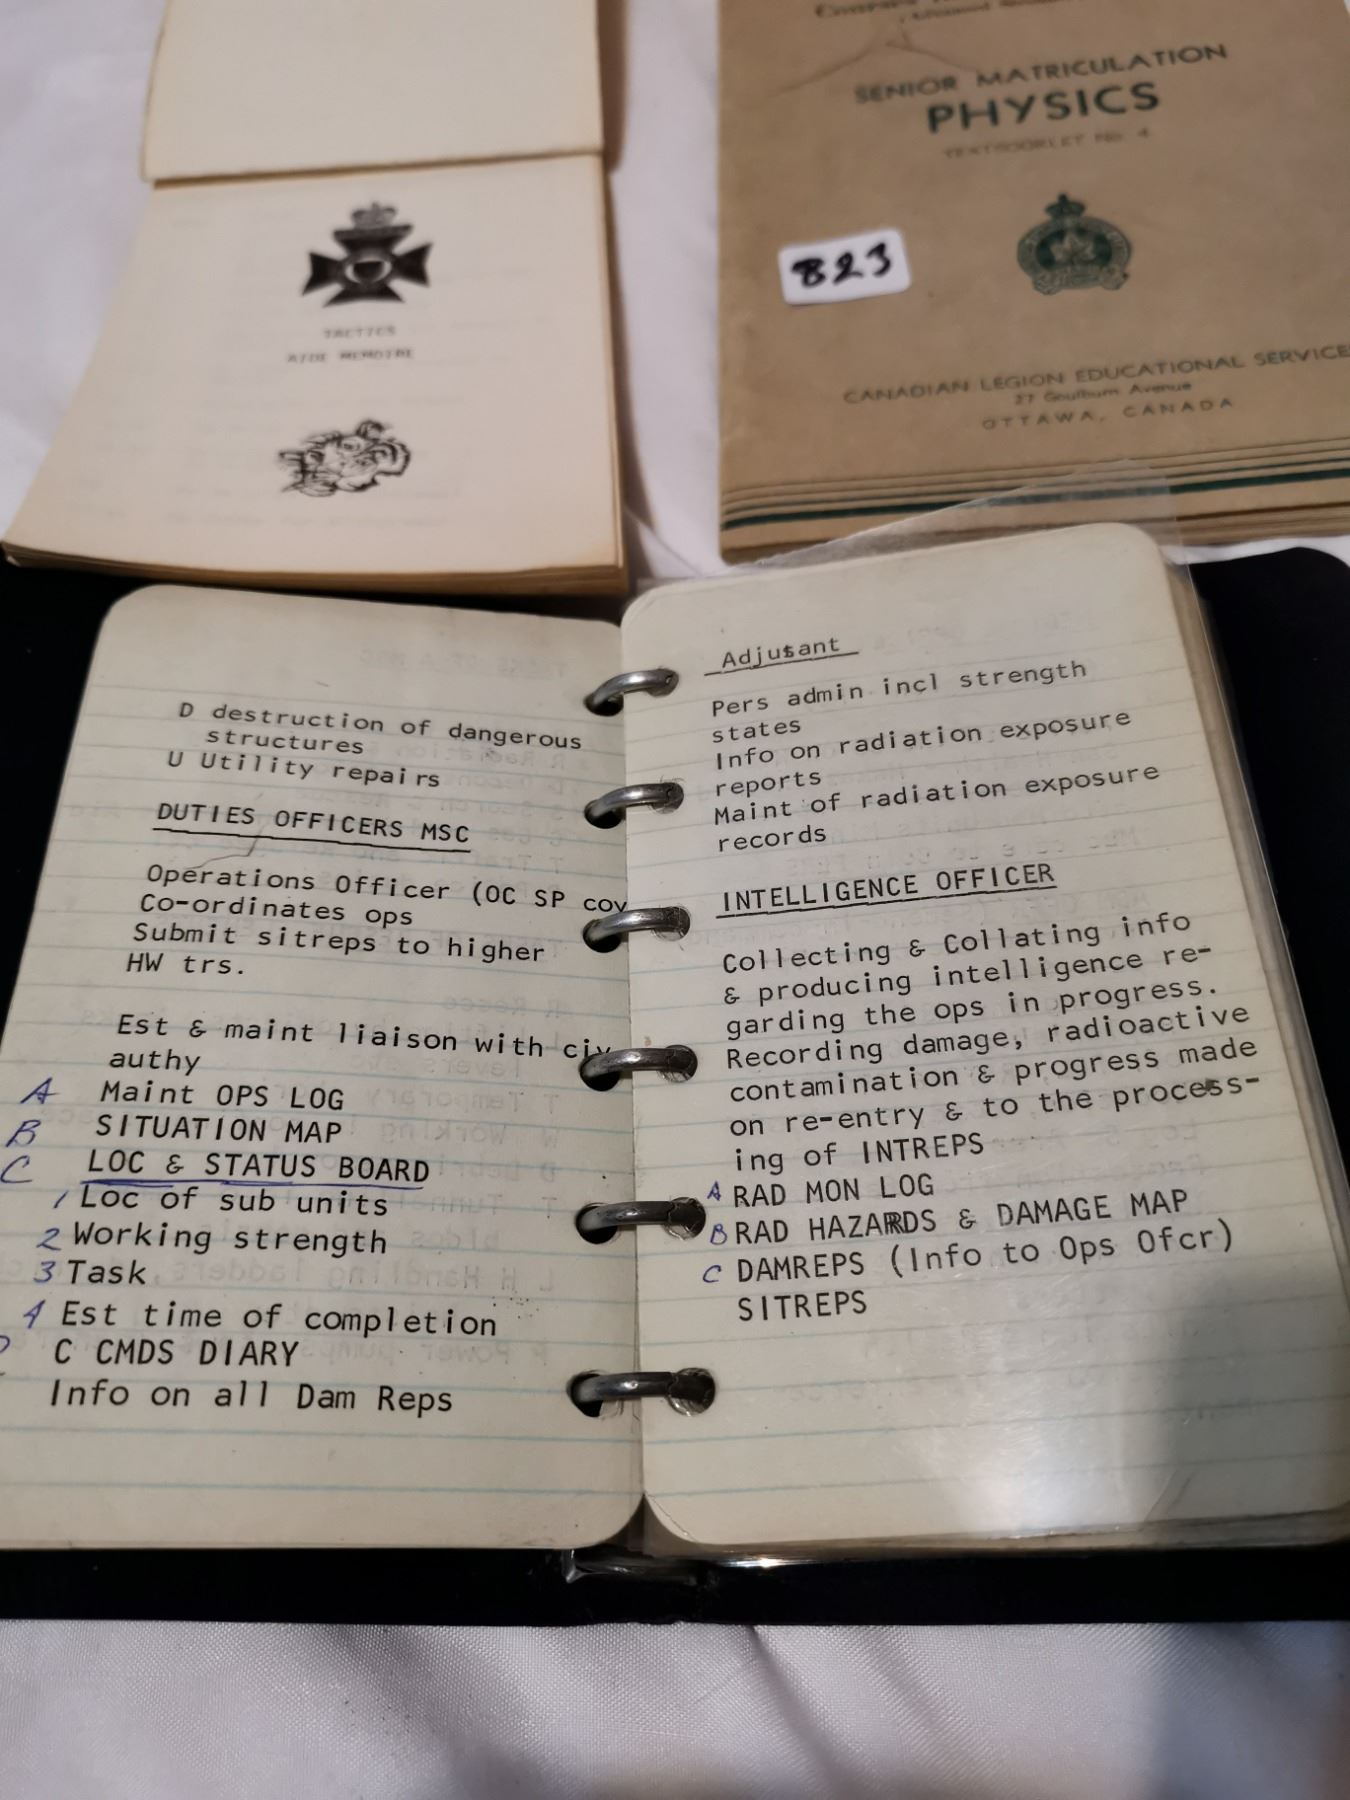 TACTICS
AIDE MEMOIRE
SENIOR MATRICULATION
PHYSICS
TEXT-BOOKLET No. 4
823
CANADIAN LEGION EDUCATIONAL SERVICE
27 Goulburn Avenue
OTTAWA, CANADA
D destruction of dangerous
structures
U Utility repairs
DUTIES OFFICERS MSC
Operations Officer (OC SP cov
Co-ordinates ops
Submit sitreps to higher
HW trs.
Est & maint liaison with civ
authy
A Maint OPS LOG
B SITUATION MAP
C LOC & STATUS BOARD
1 Loc of sub units
2 Working strength
3 Task
4 Est time of completion
C CMDS DIARY
Info on all Dam Reps
Adjusant
Pers admin incl strength
states
Info on radiation exposure
reports
Maint of radiation exposure
records
INTELLIGENCE OFFICER
Collecting & Collating info
& producing intelligence re-
garding the ops in progress.
Recording damage, radioactive
contamination & progress made
on re-entry & to the process-
ing of INTREPS
A RAD MON LOG
B RAD HAZARDS & DAMAGE MAP
C DAMREPS (Info to Ops Ofcr)
SITREPS